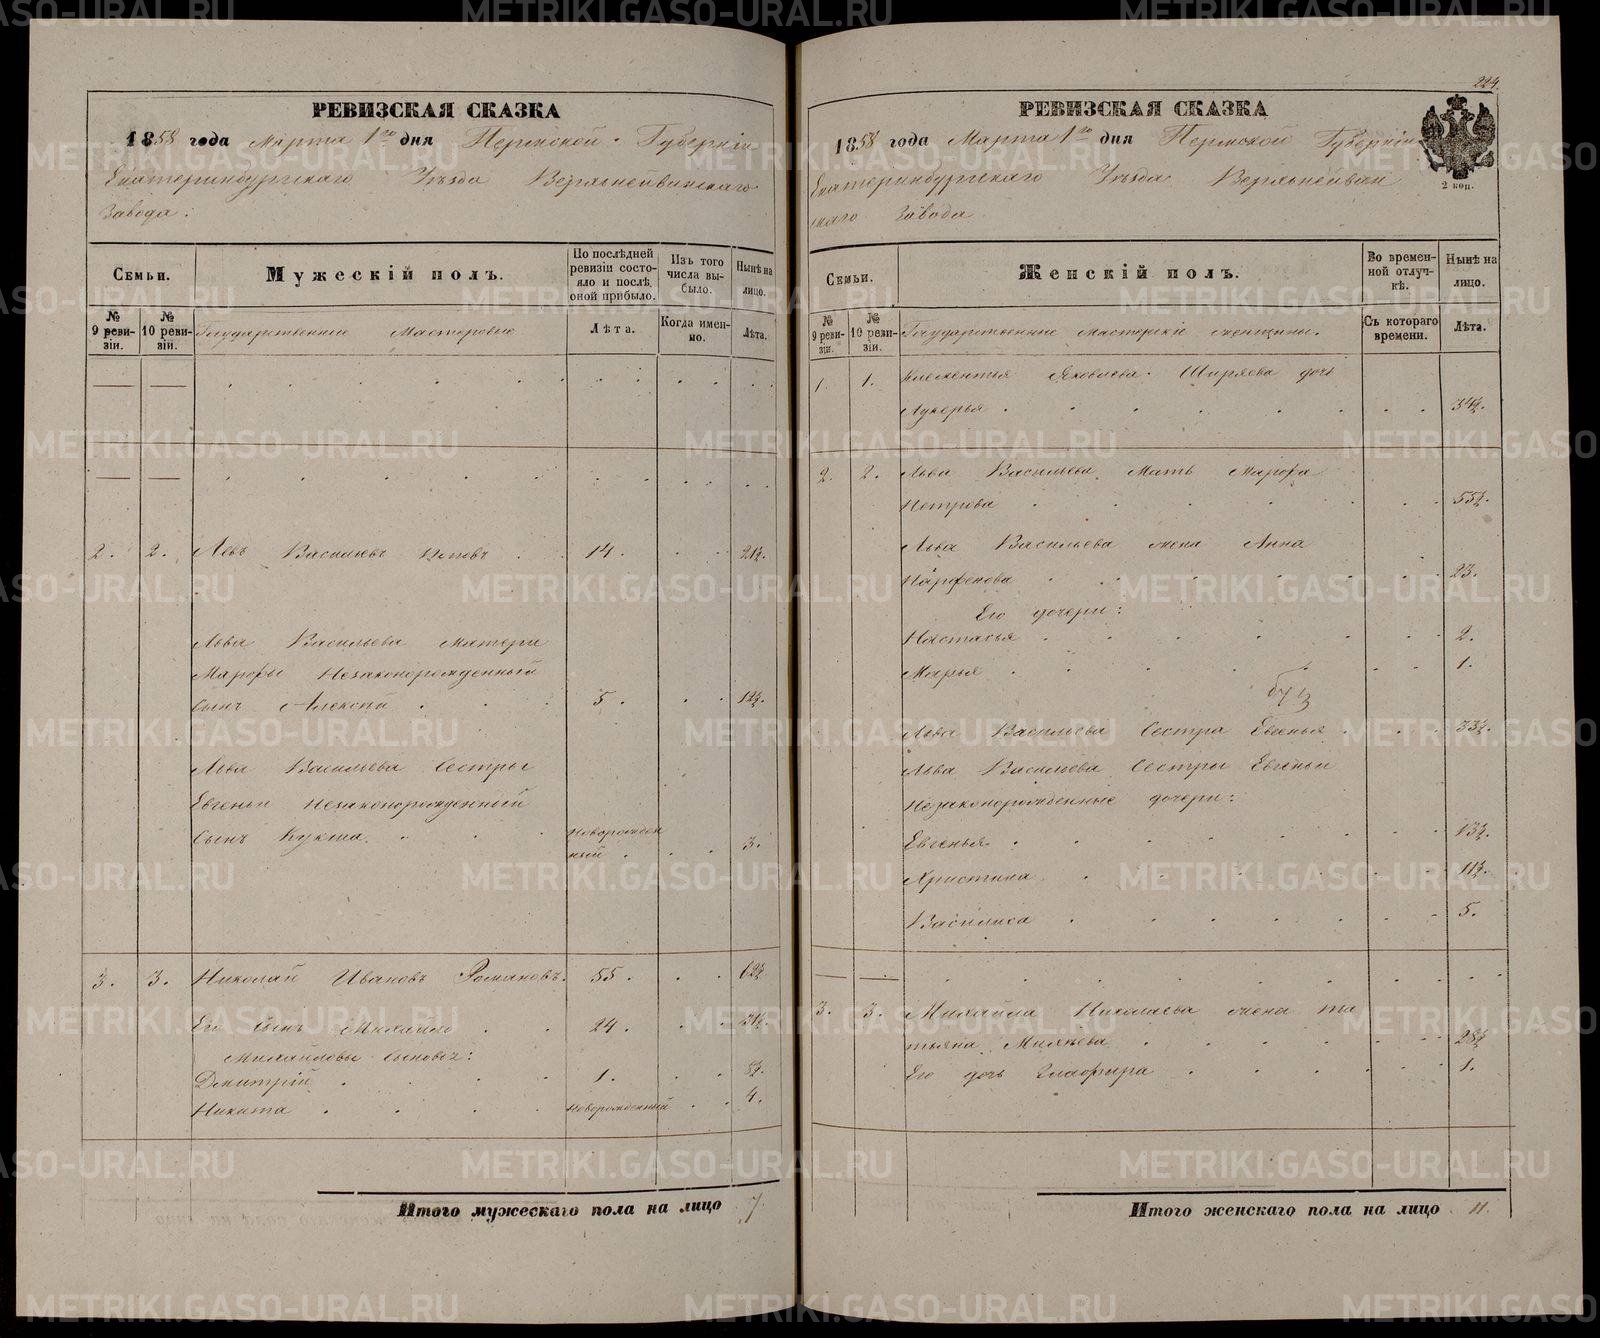 РЕВИЗСКАЯ СКАЗКА
1858 года Марта 1го дня Пермской Губерніи
Екатеринбургскаго Уѣзда Верхънейвинскаго
Завода.
Семьи.
Мужескій полъ.
По послѣдней ревизіи состояло и послѣ оной прибыло.
Изъ того числа выбыло.
Нынѣ на лицо.
№ 9 ревизіи.
№ 10 ревизіи.
Государственные Мастеровые
Лѣта.
Когда именно.
Лѣта.
2. 2. Левъ Васильевъ 14. 21½.
Льва Васильева матери
Марфы Незаконорожденный
сынъ Алексѣй 5. 12½.
Льва Васильева Сестры
Евгеньи незаконорожденный
Сынъ Кукша Новорожден
ный 3.
3. 3. Николай Ивановъ Романовъ. 55. 62½
Его сынъ Михайло 24. 31½.
Михайловы сыновья:
Дмитрій 1. 8½.
Никита новорожденный 4.
Итого мужескаго пола на лицо 7
224.
РЕВИЗСКАЯ СКАЗКА
1858 года Марта 1го дня Пермской Губерніи
Екатеринбургскаго Уѣзда Верхънейвин
скаго Завода
2 коп.
Семьи.
Женскій полъ.
Во временной отлучкѣ.
Нынѣ на лицо.
№ 9 ревизіи.
№ 10 ревизіи.
Государственные мастерскіе женщины.
Съ котораго времени.
Лѣта.
1. 1. Климентья Яковлева Ширяева дочь
Лукерья 34½.
2. 2. Льва Васильева Мать Марфа
Петрова 55½.
Льва Васильева жена Анна
Парфенова 23.
Его дочери:
Настасья 2.
Марья 1.
Льва Васильева Сестра Евгенья 33½.
Льва Васильева Сестры Евгеньи
Незаконорожденные дочери:
Евгенья 13½.
Христина 11½.
Василиса 5.
3. 3. Михайла Николаева жена Та
тьяна Михѣева 28½
Его дочь Глафира 1.
Итого женскаго пола на лицо 11.
METRIKI.GASO-URAL.RU